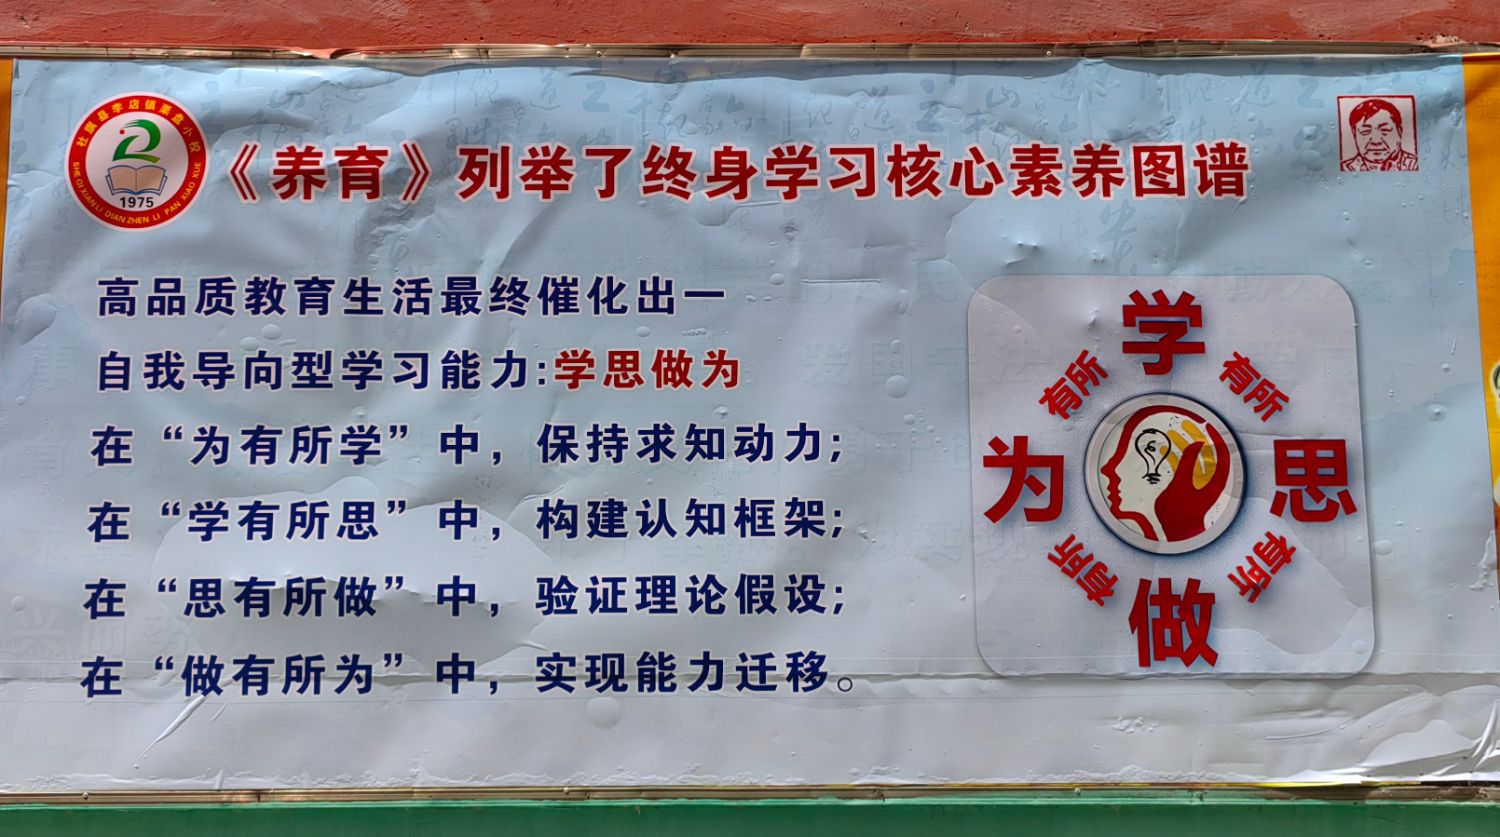 社旗县李店镇栗盘小校
SHE QI XIAN LI DIAN ZHEN LI PAN XIAO XUE
1975
《养育》列举了终身学习核心素养图谱
高品质教育生活最终催化出一
自我导向型学习能力:学思做为
在“为有所学”中，保持求知动力;
在“学有所思”中，构建认知框架;
在“思有所做”中，验证理论假设;
在“做有所为”中，实现能力迁移。
学
有所
思
有所
做
有所
为
有所